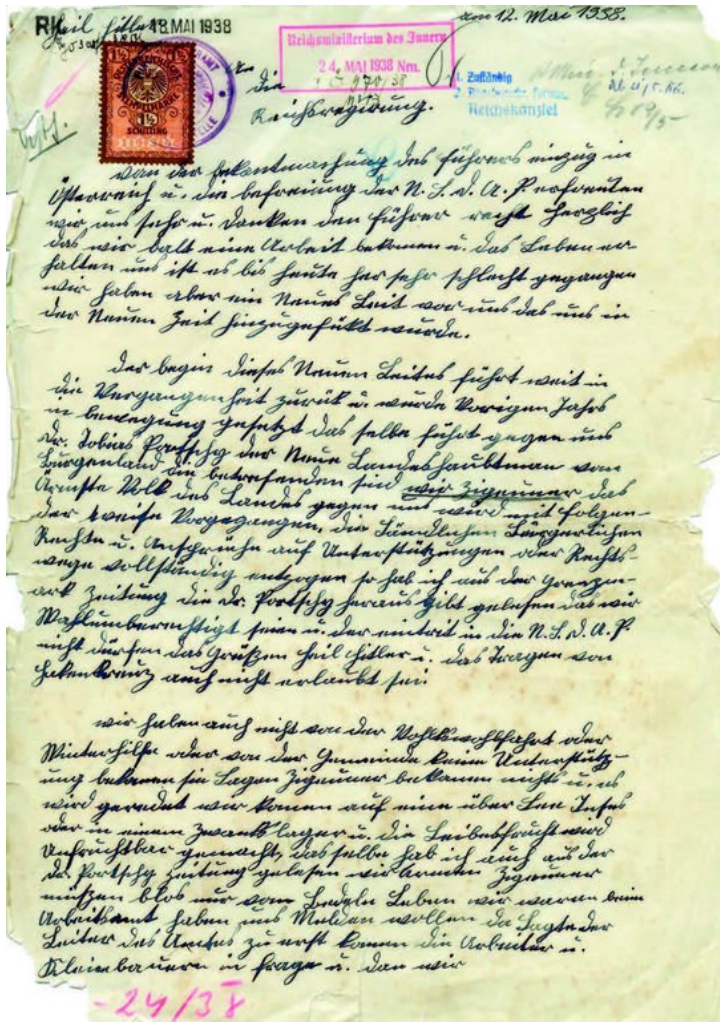 Heil Hitler
RK
18. MAI 1938
am 12. Mai 1938.
Reichsministerium des Innern
24. MAI 1938 Nm.
1. Zuständig
Reichskanzlei
An
die
Reichsregierung.
1½
SCHILLING
von der bekantmachung des führers einzug in
Österreich u. die befreiung der N. S. d. A. P. erfreuten
wir uns sehr u. danken den führer recht herzlich
das wir balt eine Arbeit bekomen u. das Leben er-
halten uns ist es bis heute her sehr schlecht gegangen
wir haben aber ein Neues Leit vor uns das uns in
der Neuen Zeit hinzugefükt wurde.
der begin dieses Neuen Leites führt weit in
die Vergangenheit zurük u. wurde Vorigen Jahrs
in bewegung gesetzt das selbe führt gegen uns
Dr. Tobias Portschy der Neue Landeshaubtman vom
Burgenland die betrefenden sind wir Zigeuner das
Ärmste Volk des Landes gegen uns wurd mit folgen-
der weise Vorgegangen, die Sämdlichen Bürgerlichen
Rechte u. Ansprüche auf Unterstützungen oder Rechts-
wege vollständig entzogen so hab ich aus der Grenzm-
ark Zeitung die Dr. Portschy heraus gibt gelesen das wir
Wahlunberechtigt seien u. der eintrit in die N. S. d. A. P.
nicht dürfen das Grüßen Heil Hitler u. das Tragen von
Hakenkreuz auch nicht erlaubt sei.
wir haben auch nicht von der Vohlkswohlfahrt oder
Winterhilfe oder von der Gemeinde keine Unterstütz-
ung bekomen sie Sagen Zigeuner bekomen nichts u. es
wird geredet wir komen auf eine über See Insel
oder in einem Zwankslager u. die Leibesfrucht werd
Unfruchtbar gemacht, das selbe hab ich auch aus der
Dr. Portschy Zeitung gelesen wir Armen Zigeuner
müßen blos nur vom Bedeln Leben wir waren beim
Arbeitsamt haben uns Melden wollen da Sagte der
Leiter des Amtes zu erst komen die Arbeiter u.
Kleinbauern in frage u. dan wir
-24/38